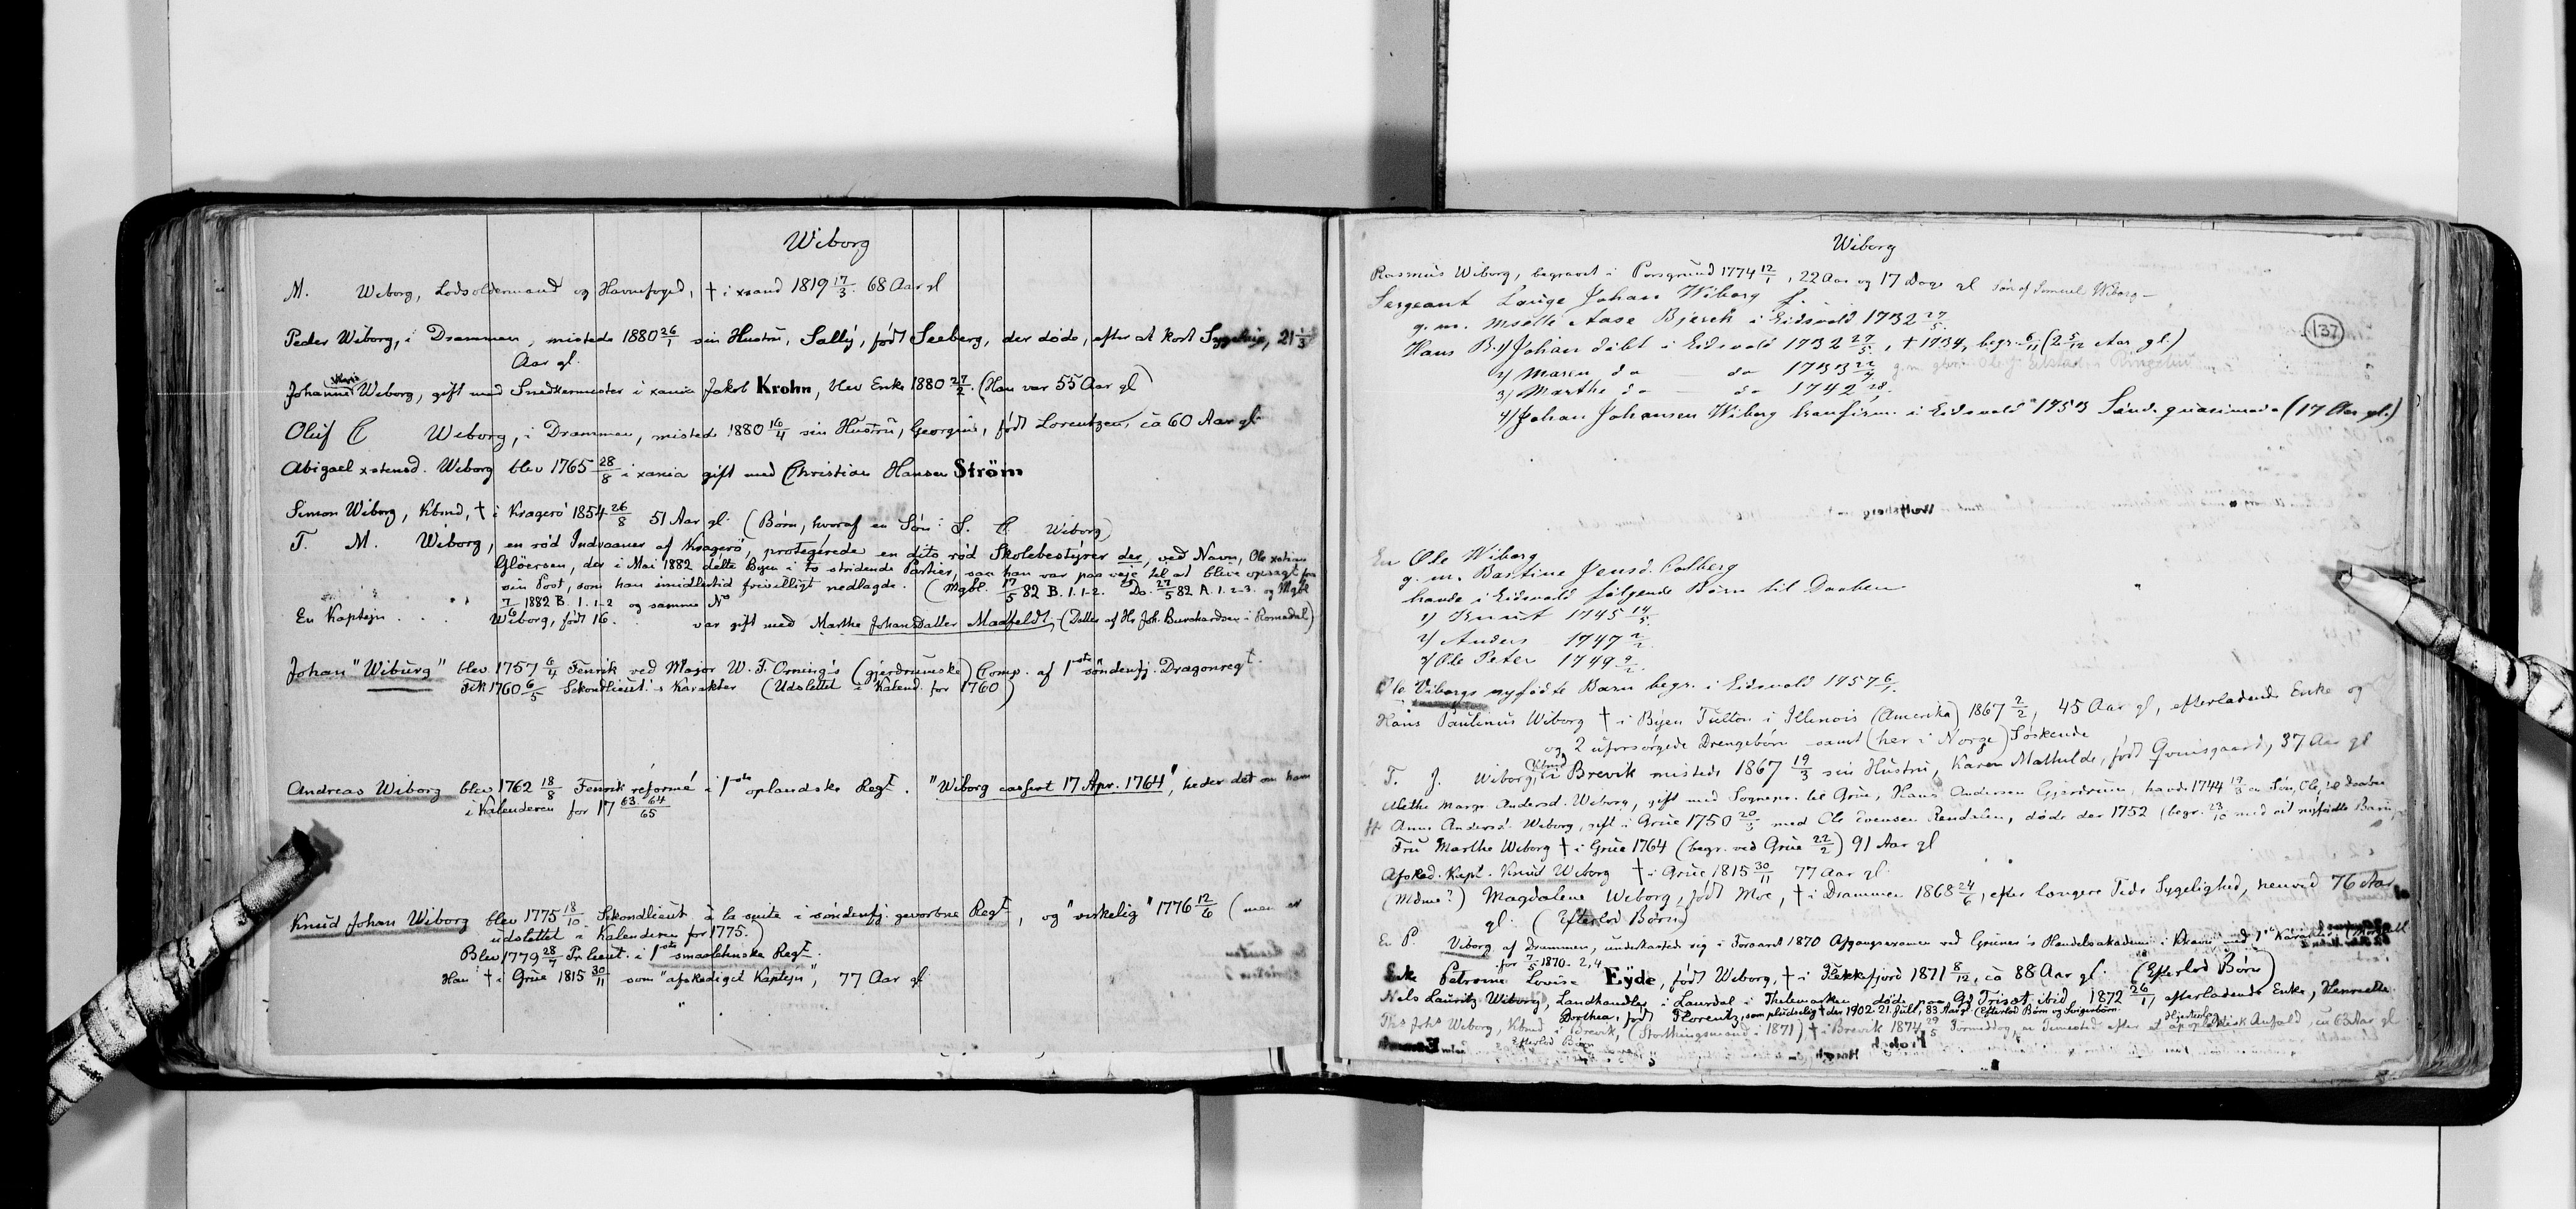 Wiborg
M. Wiborg, Lodsoldermand og Havnefoged, † i xsand 1819 17/3. 68 Aar gl
Peder Wiborg, i Drammen, mistede 1880 26/1 sin Hustru, Sally, født Seeberg, der døde, efter et kort Sygeleje, 21 1/3
Aar gl.
Johanne Marie Wiborg, gift med Snedkermester i xania Jakob Krohn, blev Enke 1880 27/2. (Han var 55 Aar gl)
Oluf C Wiborg, i Drammen, mistede 1880 16/4 sin Hustru, Georgine, født Lorentzen, ca 60 Aar gl.
Abigael xstensd. Wiborg blev 1765 28/8 i xania gift med Christian Hansen Ström
Simon Wiborg, Kbmd, † i Kragerö 1854 26/8 51 Aar gl. (Børn, hvoraf en Søn: S. C. Wiborg)
T. M. Wiborg, en rød Indvaaner af Kragerö, protegerede en dito rød Skolebestyrer der, ved Navn, Ole xstian
Glöersen, der i Mai 1882 delte Byen i to stridende Partier, saa han var paa veje til at blive opsagt fra
sin Post, som han imidlertid frivilligt nedlagde. (Mgbl. 17/5 82 B. 1.1-2. Do. 27/5 82 A. 1.2-3. og Mgbl
7/6 1882 B. 1.1-2 og samme No
En Kaptejn . . . Wiborg, født 16. var gift med Marthe Johansdatter Maafeldt, (Datter af Hr Joh. Burchardsen i Romedal)
Johan "Wiburg" blev 1757 6/4 Fenrik ved Major W. F. Orning's (gjerdrumske) Comp. af 1ste søndenfj. Dragonregt.
Fik 1760 6/5 Sekondlieut.s Karakter (Udslettet i Kalend. for 1760)
Andreas Wiborg blev 1762 18/8 Fenrik reformé i 1ste oplandske Regt. "Wiborg casseret 17 Apr. 1764", heder det om ham
i Kalenderen for 17 63. 64/65
Knud Johan Wiborg blev 1775 18/10 Sekondlieut à la suite i søndenfj. gevorbne Regt, og "virkelig" 1776 12/6 (men er
udslettet i Kalenderen for 1775.)
Blev 1779 28/7 Pr. lieut. i 1ste smaalehnske Regt.
Han † i Grue 1815 30/11 som "afskediget Kaptejn", 77 Aar gl
Wiborg
Rasmus Wiborg, begravet i Porsgrund 1774 12/1, 22 Aar og 17 Dage gl Søn af Semuel Wiborg—
Sergeant Lauge Johan Wiborg
g. m. Mselle Aase Bjerch i Eidsvold 1732 27/5.
Hans B. 1) Johan døbt i Eidsvold 1732 27/5, † 1734, begr. 6/11 (2 5/12 Aar gl.)
2) Maren do do 1733
3) Marthe do do 1742
4) Johan Johansen Wiborg konfirm. i Eidsvold 1753 Sønd. quasimodo (17 Aar gl.)
(137)
En Ole Wiborg
g. m. Bastine Jensd. Colberg
havde i Eidsvold følgende Børn til Daaben
1) Knut 1745 14/5.
2) Anders 1747
3) Ole Peter 1749
Ole Viborgs nyfødte Barn begr. i Eidsvold 1757 6/1.
Hans Paulinus Wiborg † i Byen Fulton i Illinois (Amerika) 1867 2/2, 45 Aar gl, efterladende Enke og
og 2 uforsørgede Drengebørn samt (her i Norge) Søskende
T. J. Wiborg, Kbmd i Brevik mistede 1867 19/3 sin Hustru, Karen Mathilde, født Qvinsgaard, 37 Aar gl
Mette Marg. Andersd. Wiborg, gift med Sognepr. til Grue, Hans Andersen Gjerdrum, havde 1744 en Søn, Ole, til Daaben
Anne Andersd. Wiborg, gift i Grue 1750 med Ole Evensen Rendalen, døde der 1752 (begr. 23/10 med sit nyfødte Barn
Fru Marthe Wiborg † i Grue 1764 (begr. ved Grue 22/2) 91 Aar gl
Afsked. Kapt. Knud Wiborg † i Grue 1815 30/11 77 Aar gl.
(Mdme?) Magdalene Wiborg, født Moe, † i Drammen 1868 24/6, efter længere Tids Sygelighed, henved 76 Aar
gl. (Efterlod Børn)
En P. Viborg af Drammen, underkastede sig i Foraaret 1870 Afgangsexamen ved Grüner's Handelsakademi i
for 7/5 1870. 2,4
Enke Petronne Lovise Eyde, født Wiborg, † i Flekkefjord 1871 8/12, ca 88 Aar gl. (Efterlod Børn)
Nels Lauritz Wiborg, Landhandler i Laurdal i Thelemarken, døde paa Gd Trisæt ibid 1872 26/11 efterladende Enke, Henriette
Dorthea, født Florentz, som pludselig † der 1902 21 Juli, 83 Aar gl. (Efterlod Børn og Svigerbørn.
Ths Johs Wiborg, Kbmd i Brevik, (Storthingsmand i 1871) † i Brevik 1874 29/5 Formiddag, efter et apoplektisk Anfald, ca 63 Aar gl
Efterlod Børn